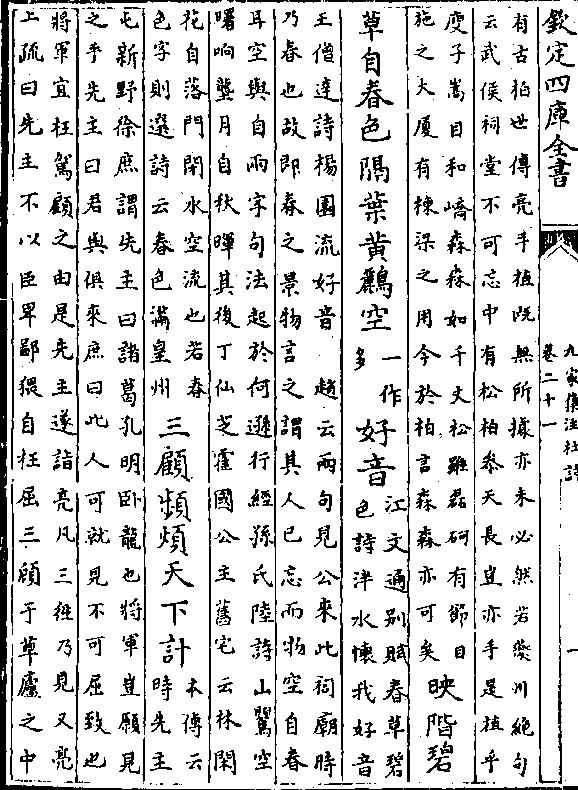 欽定四庫全書
九家集注杜詩
卷二十一
一
有古柏世傳亮手植既無所據亦未必然若夔州絶句
云武侯祠堂不可忘中有松柏參天長豈亦手是植乎
庾子嵩目和嶠森森如千丈松雖磊砢有節目
施之大厦有棟梁之用今於柏言森森亦可矣
映階碧
草自春色隔葉黄鸝空
一作
多
好音
江文通别賦春草碧
色詩泮水懷我好音
王僧達詩楊園流好音 趙云兩句見公來此祠廟時
乃春也故即春之景物言之謂其人已忘而物空自春
耳空與自兩字句法起於何遜行經孫氏陵詩山鶯空
曙响壟月自秋暉其後丁仙芝霍國公主舊宅云林閑
花自落門閉水空流也若春
色字則選詩云春色滿皇州
三顧頻煩天下計
本傳云
時先主
屯新野徐庶謂先主曰諸葛孔明卧龍也將軍豈願見
之乎先主曰君與俱來庶曰此人可就見不可屈致也
將軍宜枉駕顧之由是先主遂詣亮凡三往乃見又亮
上疏曰先主不以臣卑鄙猥自枉屈三顧于草廬之中